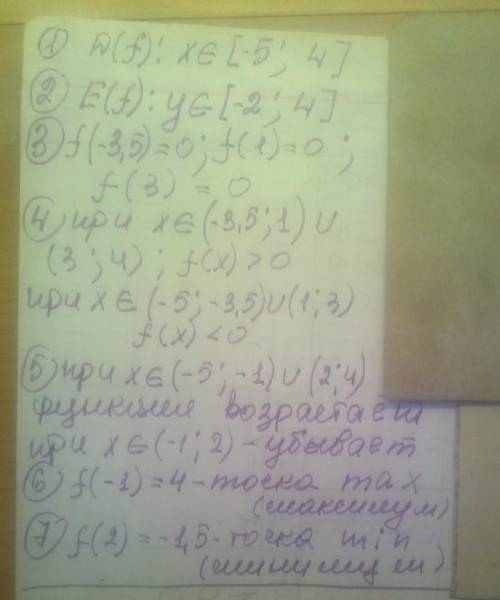 ① D(f): x∈[-5; 4]
② E(f): y∈[-2; 4]
③ f(-3,5)=0; f(1)=0;
f(3) = 0
④ при x∈(-3,5;1)∪
(3;4); f(x)>0
при x∈(-5;-3,5)∪(1;3)
f(x)<0
⑤ при x∈(-5;-1)∪(2;4)
функция возрастает
при x∈(-1;2)-убывает
⑥ f(-1)=4-точка max
(максимум)
⑦ f(2)=-1,5-точка min
(минимум)